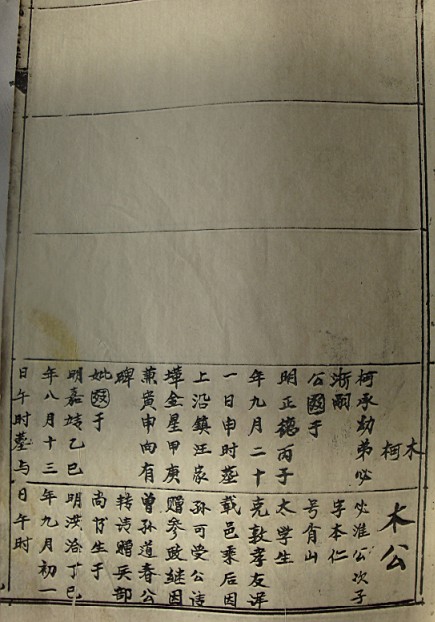 木柯
柯承勋弟必
淅嗣
公殁于
明正德丙子
年九月二十
一日申时葬
上沿鎮汪家
金星甲庚
兼寅申向有
碑
妣殁于
明嘉靖乙巳
年八月十三
日午时墓与
木公
必淮公次子
字本仁
号育山
太学生
克敦孝友详
載邑乘后因
孙可受公诰
赠参政继因
曾孙道春公
转诰赠兵部
尚书生于
明洪治丁巳
年九月初一
日午时